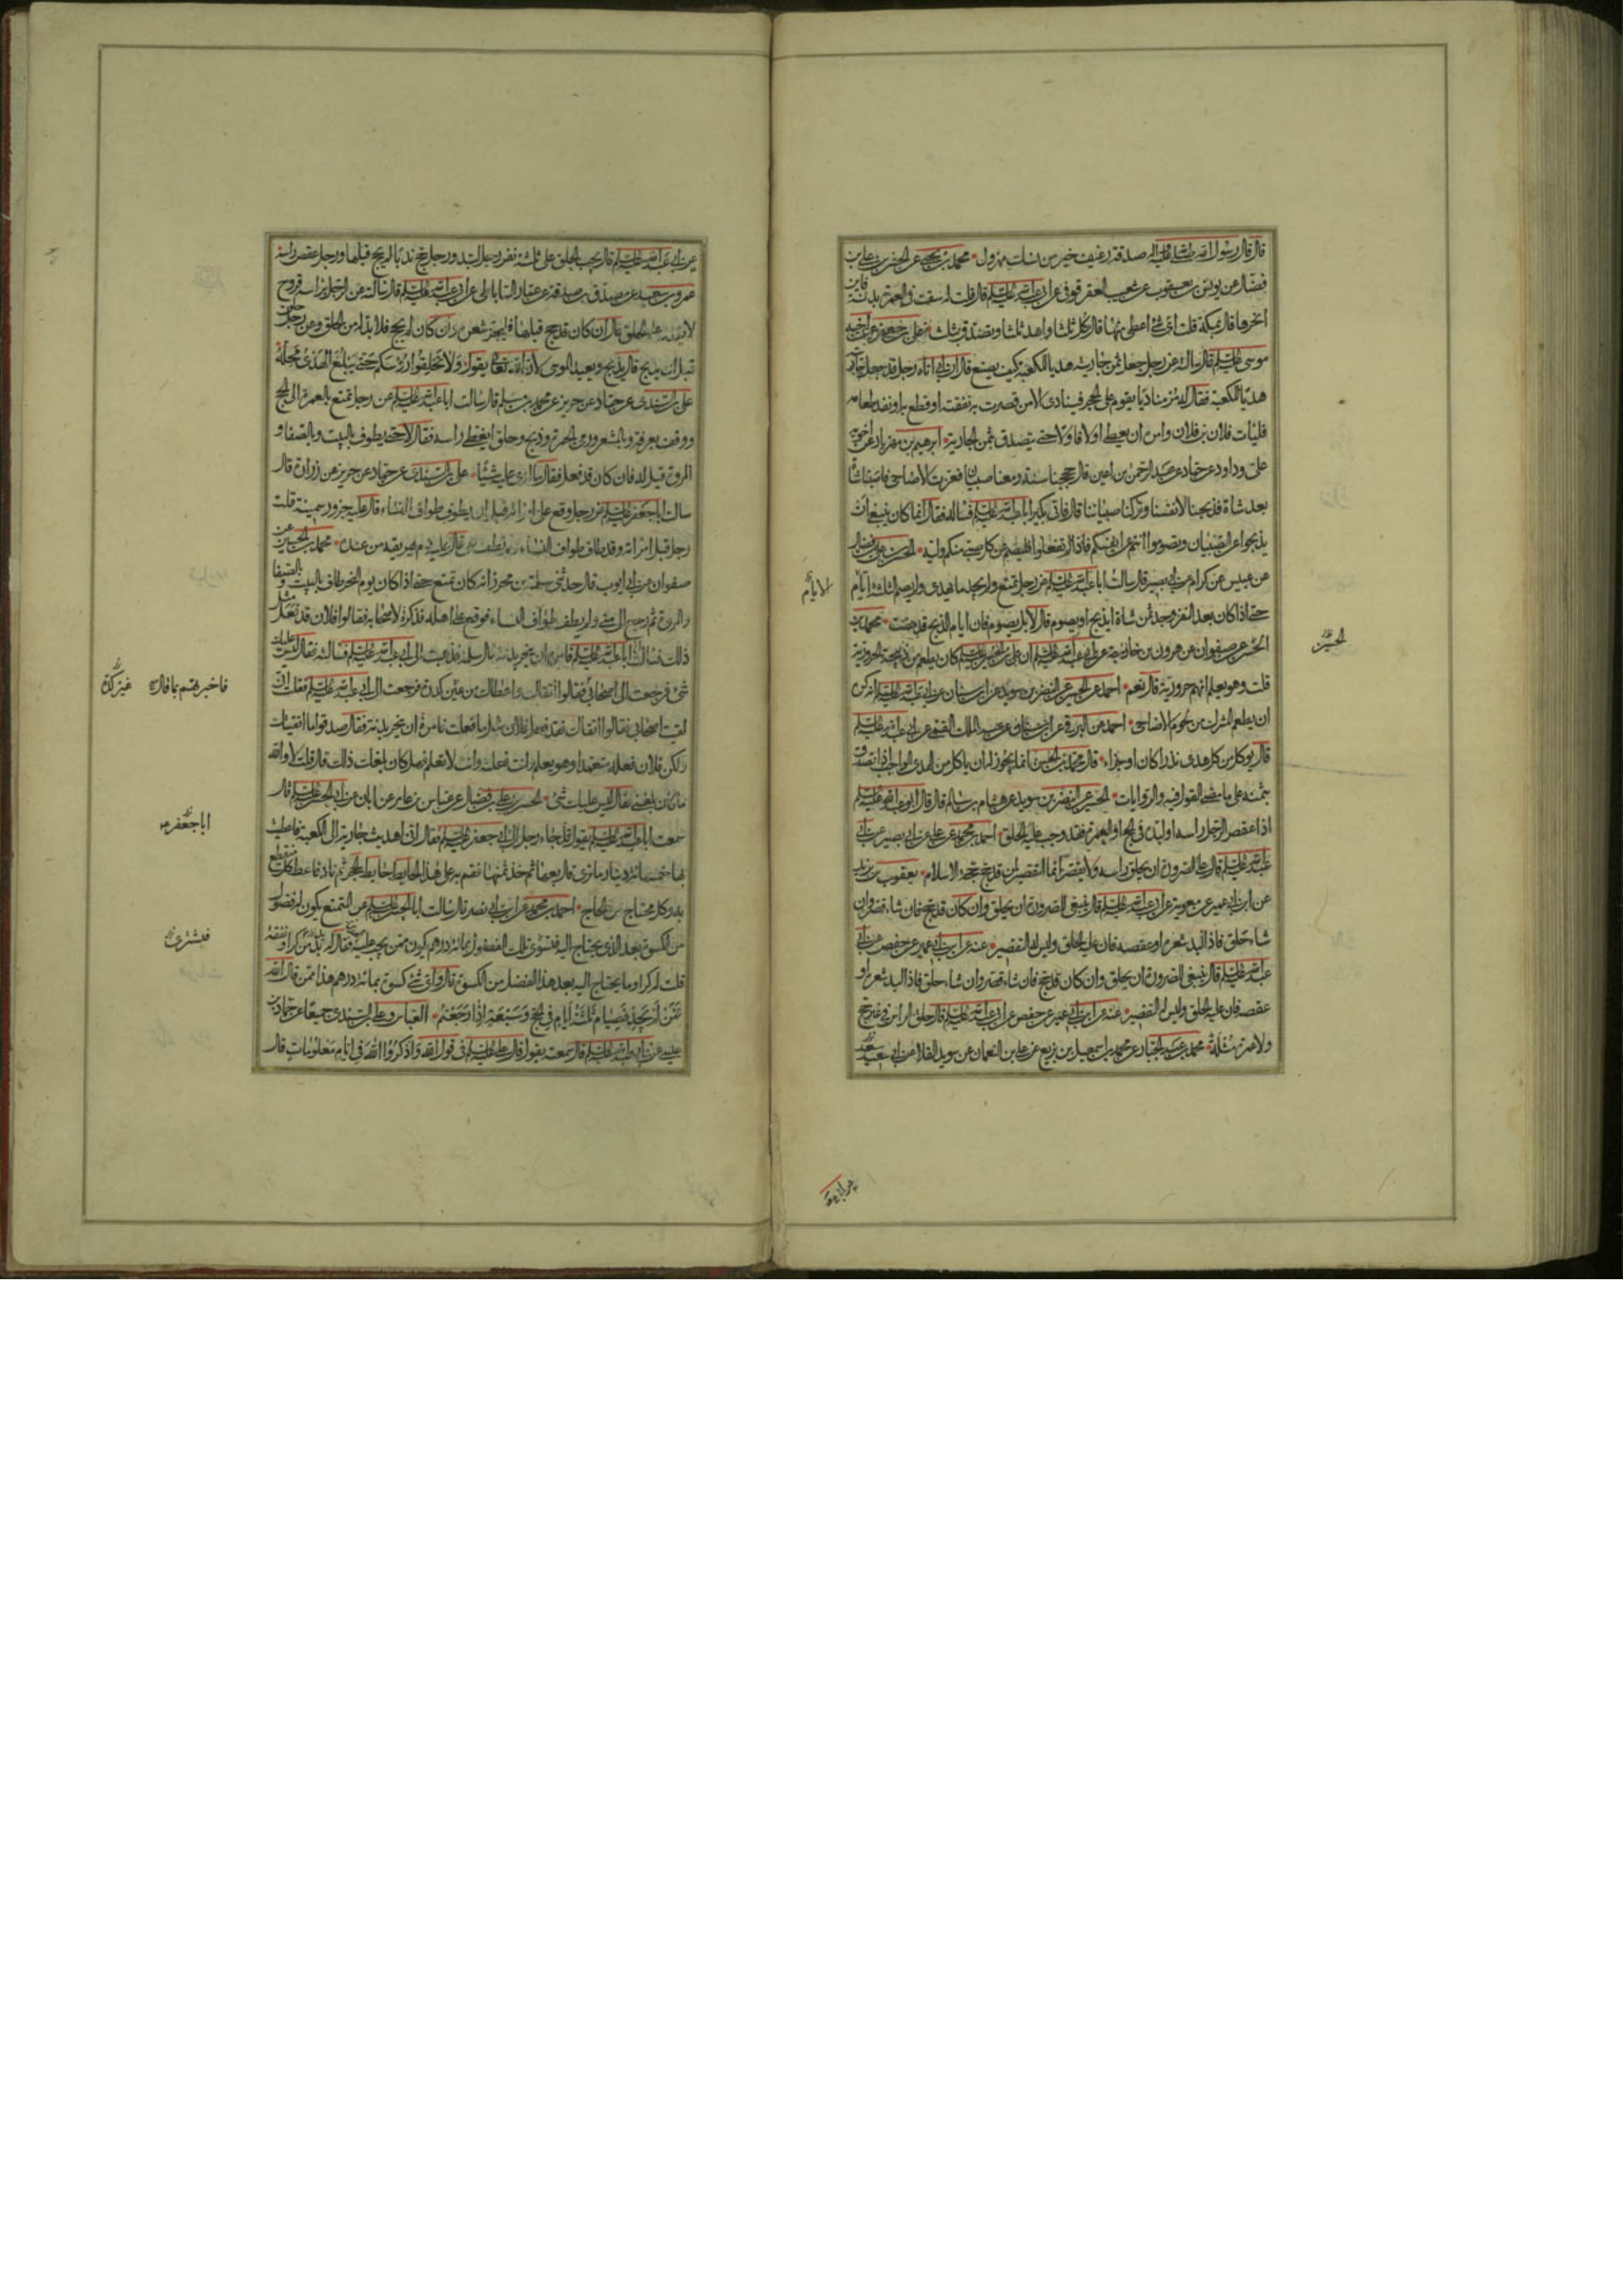 قال قال رسول الله صلى الله عليه واله صدقة رغيف خير من نسك مهزول محمد بن يحيى عن الحسن بن علي بن
فضال عن يونس بن يعقوب عن شعيب العقرقوفي عن ابي عبد الله عليه السلم قال قلت له سقت في العمرة بدنة فاين
انحرها قال بمكة قلت اي شئ اعطي منها قال كل ثلثا واهد ثلثا وتصدق بثلث علي بن جعفر عن اخيه
موسى عليه السلم قال سالته عن رجل جعل ثمن جاريته هديا للكعبة كيف يصنع قال ان ابي اتاه رجل قد جعل جاريته
هديا للكعبة فقال له مر مناديا يقوم على الحجر فينادي الا من قصرت به نفقته او قطع به او نفد طعامه
فليات فلان بن فلان وامره ان يعطي اولا فاولا حتى يتصدق بثمن الجارية ابرهيم بن مهزيار عن اخيه
علي وداود عن حماد عن عبد الرحمن بن اعين قال حججنا سنة ومعنا صبيان فعزت الاضاحي فاصبنا شاة
بعد شاة فذبحنا لانفسنا وتركنا صبياننا قال فاتى بكير ابا عبد الله عليه السلم فساله فقال انما كان ينبغي ان
يذبحوا عن الصبيان وتصوموا انتم عن انفسكم فاذ لم تفعلوا فليصم عن كل صبي منكم وليه الحسن بن علي بن فضال
عن عبيس عن كرام عن ابي بصير قال سالت ابا عبد الله عليه السلم عن رجل تمتع ولم يجد ما يهدي ولم يصم الثلثة ايام
حتى اذا كان بعد النفر وجد ثمن شاة ايذبح او يصوم قال لا بل يصوم فان ايام الذبح قد مضت محمد بن
الحسن عن صفوان عن هرون بن خارجة عن ابي عبد الله عليه السلم ان علي بن الحسين عليه السلم كان يطعم من ذبيحته الحرورية
قلت وهو يعلم انهم حرورية قال نعم احمد عن الحسين عن النضر بن سويد عن ابن سنان عن ابي عبد الله عليه السلم انه كره
ان يطعم المشرك من لحوم الاضاحي احمد عن البرقي عن ابن عبد الملك القمي عن ابي عبد الله عليه السلم
قال يوكل من كل هدي نذرا كان او جزاء قال محمد بن الحسن انما يجوز له ان ياكل من الهدي الواجب اذا تصدق
بثمنه على ما مضى القول فيه والروايات الحسين عن النضر بن سويد عن هشام بن سالم قال قال ابو عبد الله عليه السلم
اذا عقص الرجل راسه او لبده في الحج او العمرة فقد وجب عليه الحلق احمد بن محمد عن علي عن ابي بصير عن ابي
عبد الله عليه السلم قال على الصرورة ان يحلق راسه ولا يقصر انما التقصير لمن قد حج حجة الاسلام يعقوب بن يزيد
عن ابن ابي عمير عن معوية عن ابي عبد الله عليه السلم قال ينبغي للصرورة ان يحلق وان كان قد حج فان شاء قصر وان
شاء حلق فاذا لبد شعره او عقصه فان عليه الحلق وليس له التقصير عنه عن ابن ابي عمير عن حفص عن ابي
عبد الله عليه السلم قال ينبغي للصرورة ان يحلق وان كان قد حج فان شاء قصر وان شاء حلق فاذا لبد شعره او
عقصه فان عليه الحلق وليس له التقصير عنه عن ابن ابي عمير عن حفص عن ابي عبد الله عليه السلم قال حلق الراس في غير حج
ولا عمرة مثلة محمد بن عبد الجبار عن محمد بن اسمعيل بن بزيع عن علي بن النعمان عن سويد القلا عن ابي سعيد
الايام
الحسين
عن ابي عبد الله عليه السلم قال يجب الحلق على ثلثة نفر رجل لبد ورجل حج ندبا لم يحج قبلها ورجل عقص راسه
عمرو بن سعيد عن مصدق بن صدقة عن عمار الساباطي عن ابي عبد الله عليه السلم قال سالته عن الرجل براسه قروح
لا يقدر على الحلق قال ان كان قد حج قبلها فليجز شعره وان كان لم يحج فلا بد له من الحلق وعن رجل حلق
قبل ان يذبح قال يذبح ويعيد الموسى لان الله تعالى يقول ولا تحلقوا رؤسكم حتى يبلغ الهدي محله
علي بن السندي عن حماد عن حريز عن محمد بن مسلم قال سالت ابا عبد الله عليه السلم عن رجل تمتع بالعمرة الى الحج
ووقف بعرفة وبالمشعر ورمى الجمرة وذبح وحلق ايغطي راسه فقال لا حتى يطوف بالبيت وبالصفا و
المروة قيل له فان كان قد فعل فقال ما ارى عليه شيئا علي بن السندي عن حماد عن حريز عن زرارة قال
سالت ابا جعفر عليه السلم عن رجل وقع على امراته قبل ان يطوف طواف النساء قال عليه جزور سمينة قلت
رجل قبل امراته وقد طاف طواف النساء ولم تطف هي قال عليه دم يهريقه من عنده محمد بن الحسين عن
صفوان عن ابي ايوب قال حدثني سلمة بن محرز انه كان تمتع حتى اذا كان يوم النحر طاف بالبيت وبالصفا
والمروة ثم رجع الى منى ولم يطف طواف النساء فوقع على اهله فذكره لاصحابه فقالوا فلان قد فعل مثل
ذلك فسالت ابا عبد الله عليه السلم فامره ان ينحر بدنة قال سلمة فذهبت الى ابي عبد الله عليه السلم فسالته فقال ليس عليك
شئ فرجعت الى اصحابي فقالوا اتقاك واعطاك من عين كدرة فرجعت الى ابي عبد الله عليه السلم فقلت اني
لقيت اصحابي فقالوا اتقاك فقد فعل فلان مثل ما فعلت فامره ان ينحر بدنة فقال صدقوا ما اتقيتك
ولكن فلان فعله متعمدا وهو يعلم وانت فعلته وانت لا تعلم فهل كان بلغك ذلك قال قلت لا والله
ما كان بلغني فقال ليس عليك شئ الحسن بن علي بن فضال عن عباس بن عامر عن ابان عن ابي الحسن عليه السلم قال
سمعت ابا عبد الله عليه السلم يقول قد جاء رجل الى ابي جعفر عليه السلم فقال اني اهديت جارية الى الكعبة فاعطيت
بها خمسمائة دينار ما ترى قال بعها ثم خذ ثمنها فقم به على هذا الحايط حايط الحجر ثم ناد فاعط كل منقطع
به وكل محتاج من الحاج احمد بن محمد عن ابن ابي نصر قال سالت ابا الحسن عليه السلم عن المتمتع يكون له فضول
من الكسوة بعد الذي يحتاج اليه فتسوى تلك الفضول بمائة درهم يكون ممن يجب عليه فقال له بد من كراء ونفقة
قلت له كراء وما يحتاج اليه بعد هذا الفضل من الكسوة قال واي شئ كسوة بمائة درهم هذا ممن قال الله
فمن لم يجد فصيام ثلثة ايام في الحج وسبعة اذا رجعتم العباس وعلي بن السندي جميعا عن حماد بن
عيسى عن ابي عبد الله عليه السلم قال سمعته يقول قال علي عليه السلم في قول الله واذكروا الله في ايام معلومات قال
فاخبرتهم بما قال لي
عين كدرة
ابا جعفر
فيشترى